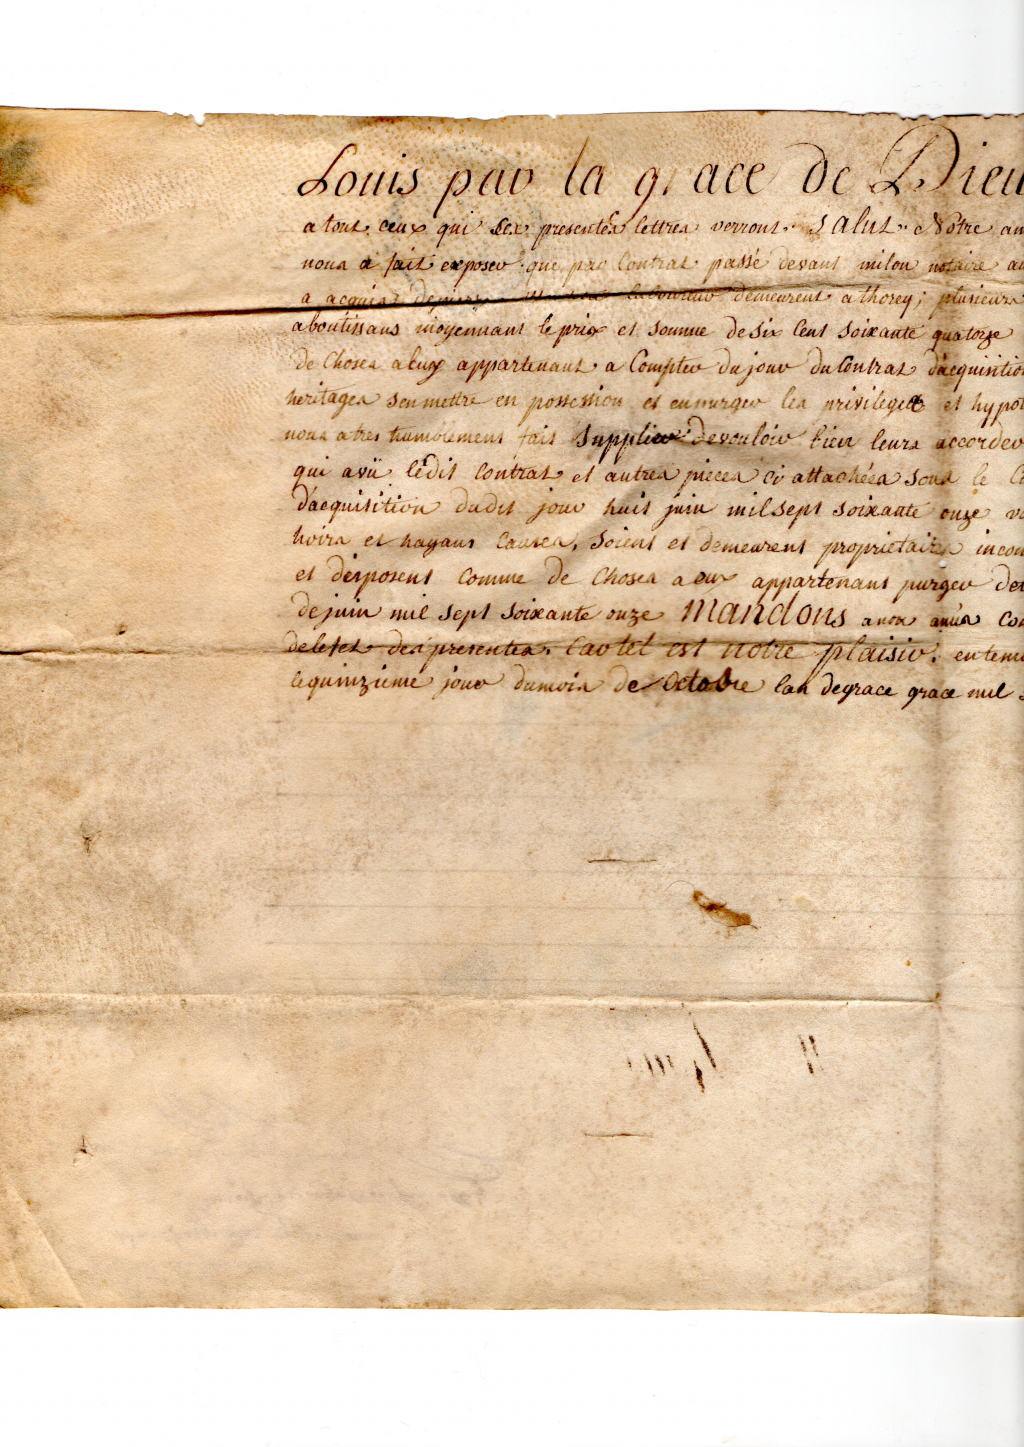 Louis par la grace de Dieu
a tous ceux qui ses presentes lettres verront salut Notre am
nous a fait exposer que par Contrat passé devant milon notaire au
a acquis demeurent a thorey; plusieurs
aboutissans moyennant le prix et somme de six Cent soixante quatorze
de Choses a luy appartenant a Compter du jour du Contrat d'acquisition
heritages sen mettre en possession et en purger les privileges et hypot
nous a tres humblement fait supplier de vouloir bien leurs accorder
qui a vü ledit Contrat et autres pieces cy attachées sous le
d'acquisition dudit jour huit juin mil sept soixante onze
hoirs et hayans Causes, soient et demeurent proprietaires incom
et disposent Comme de Choses a eux appartenant purger de
de juin mil sept soixante onze Mandons a nos amés
des presentes. Car tel est notre plaisir. en temo
le quinzieme jour du mois de Octobre lan de grace grace mil